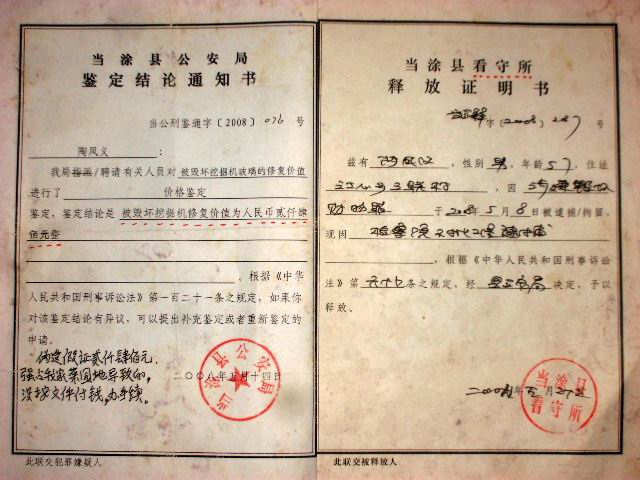 当涂县公安局
鉴定结论通知书
当公刑鉴通字〔2008〕076 号
陶凤义 ：
我局指派/聘请有关人员对 被毁坏挖掘机玻璃的修复价值
进行了 价格鉴定
鉴定，鉴定结论是 被毁坏挖掘机修复价值为人民币贰仟肆
佰元整
。根据《中华
人民共和国刑事诉讼法》第一百二十一条之规定，如果你
对该鉴定结论有异议，可以提出补充鉴定或者重新鉴定的
申请。
伪造假证贰仟肆佰元.
强占我家菜园地导致的,
没按文件付钱,办手续.
二〇〇八年五月十四日
当涂县公安局
此联交犯罪嫌疑人
当涂县看守所
释放证明书
字〔2008〕287 号
兹有 陶凤义 ，性别 男，年龄 57，住址
，因
财物罪 于 2008年5月8日被逮捕/拘留，
现因
，根据《中华人民共和国刑事诉讼
法》第 条之规定，经 县公安局 决定，予以
释放。
当涂县
看守所
此联交被释放人